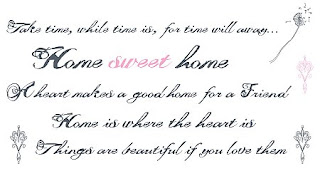 Take time, while time is, for time will away...
Home sweet home
A heart makes a good home for a Friend
Home is where the heart is
Things are beautiful if you love them